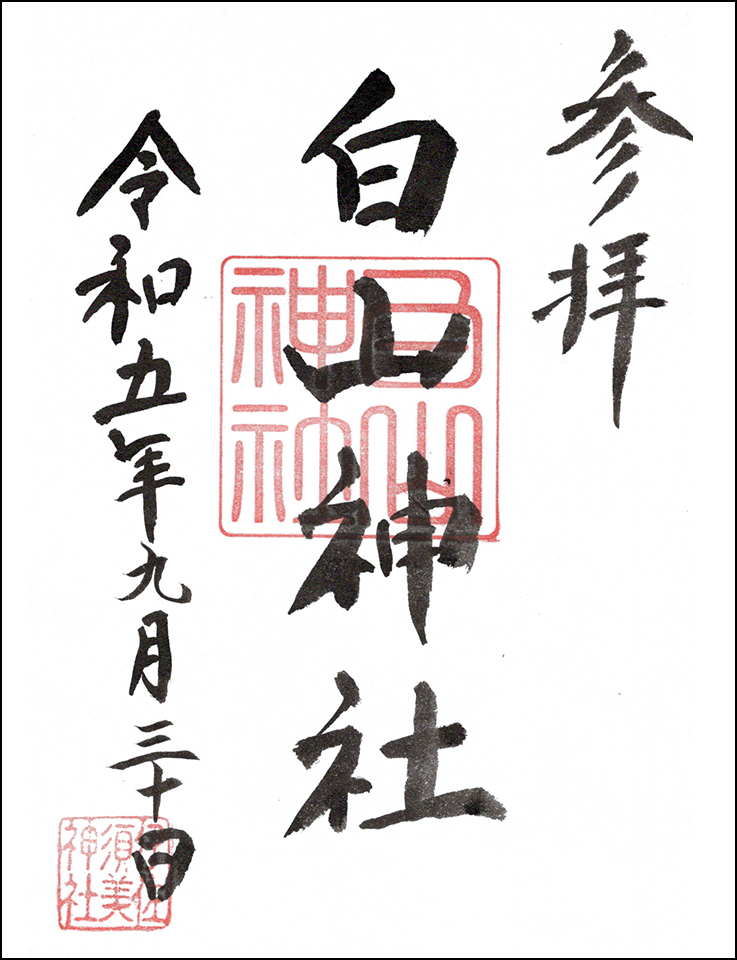 参拝
白山神社
白山神社
令和五年九月三十日
須美
神社